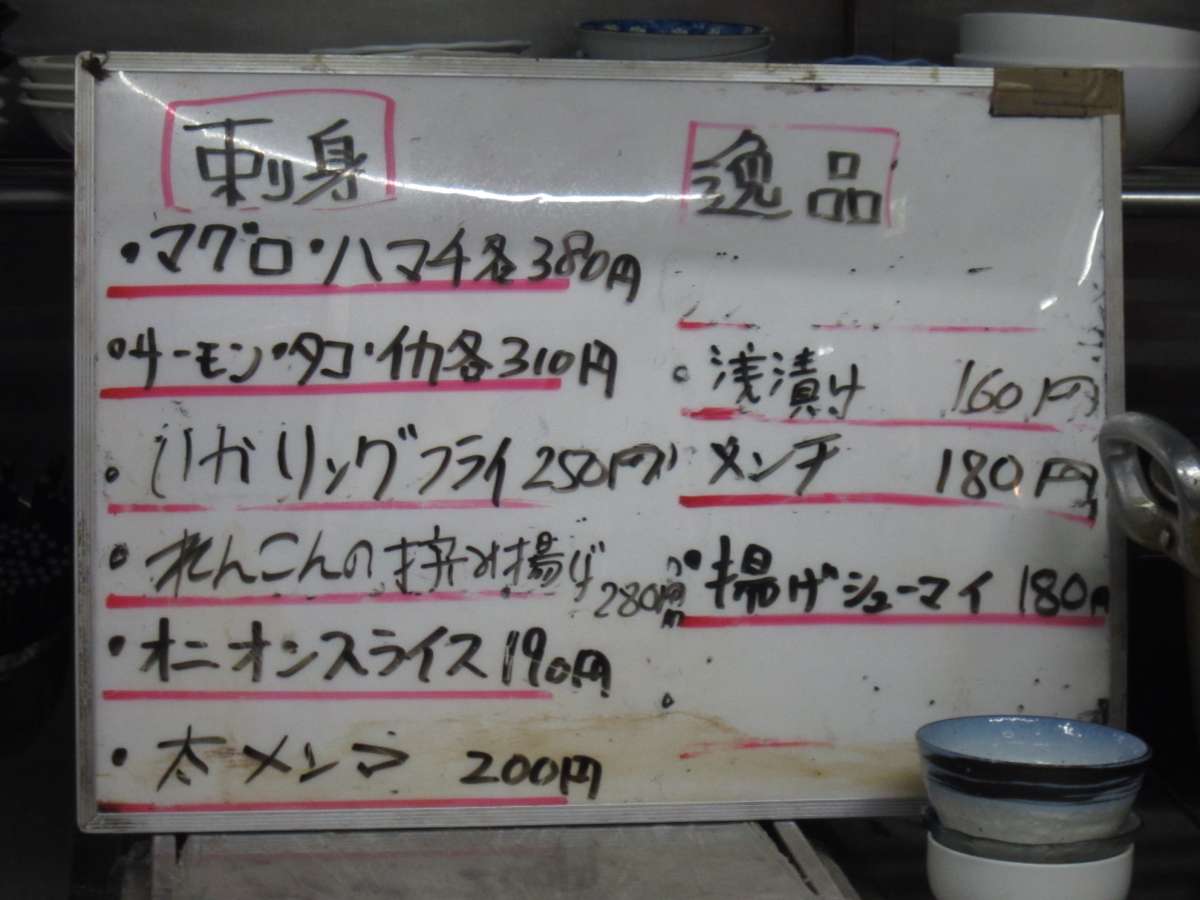 刺身
・マグロ・ハマチ各380円
・サーモン・タコ・イカ各310円
・いかリングフライ250円
・れんこんの挟み揚げ280円
・オニオンスライス190円
・太メンマ 200円
逸品
・浅漬け 160円
メンチ 180円
・揚げシューマイ 180円